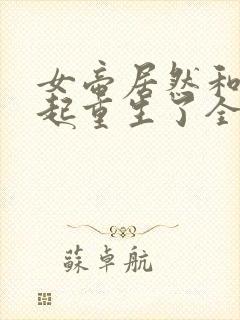 女帝居然和
起重生了全
蘇卓航